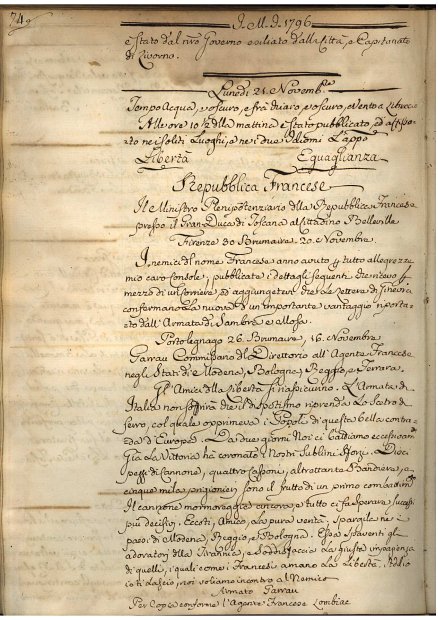 749
I. M. I. 1796
è stato dal nro Governo esiliato dalla Città, e Capitanato
di Livorno.
Lunedì 21. Novembre
Tempo Acqua, e oscuro, e fra chiaro, e oscuro, e Vento a Libeccio
Alle ore 10 ½ della mattina è stato pubblicato, ed affisso
to nei soliti Luoghi, e nei due Idiomi L'appo
Libertà Eguaglianza
Repubblica Francese
Il Ministro Plenipotenziario della Repubblica Francese
presso il Gran-Duca di Toscana al Cittadino Belleville
Firenze 30 Brumaire. 20. Novembre.
I nemici del nome Francese anno avuto tutto allegrezze
mio caro Console; pubblicate i dettagli seguenti che ricevo p
mezzo di un corriere, ed aggiungete che le Lettere di Ginevra
confermano la nuova d'un importante vantaggio riporta-
to dall'Armata di Sambra e Mosa.
Porto Legnago 26. Brumaire, 16. Novembre
Garrau Commissario del Direttorio all'Agente Francese
negli Stati di Modena, Bologna, Reggio, e Ferrara.
Gl'Amici della Libertà si rassicurino. L'Armata di
Italia non soffrirà che il dispotismo riprenda lo Scetro di
ferro, col quale opprimeva i Popoli di questa bella contra-
da d'Europa. Da due giorni Noi ci battiamo
Già la Vittoria ha coronato i Nostri Sublimi Sforzi. Dieci
pezzi di Cannone, quattro Cassoni, altrettante Bandiere, e
cinque mila prigionieri sono il frutto di un primo combattim
Il cannone mormoreggia ancora, e tutto ci fa sperare successi
più decisivi. Eccoti, Amico, la pura verità. Spargila nei
paesi di Modena, Reggio, e Bologna. Essa Spaventi gli
adoratori della Tirannia, e Soddisfaccia la giusta impazienza
di quelli, i quali come i Francesi amano la Libertà. Addio
io ti lascio, noi voliamo incontro al Nemico
Firmato Garrau
Per Copia conforme l'Agente Francese